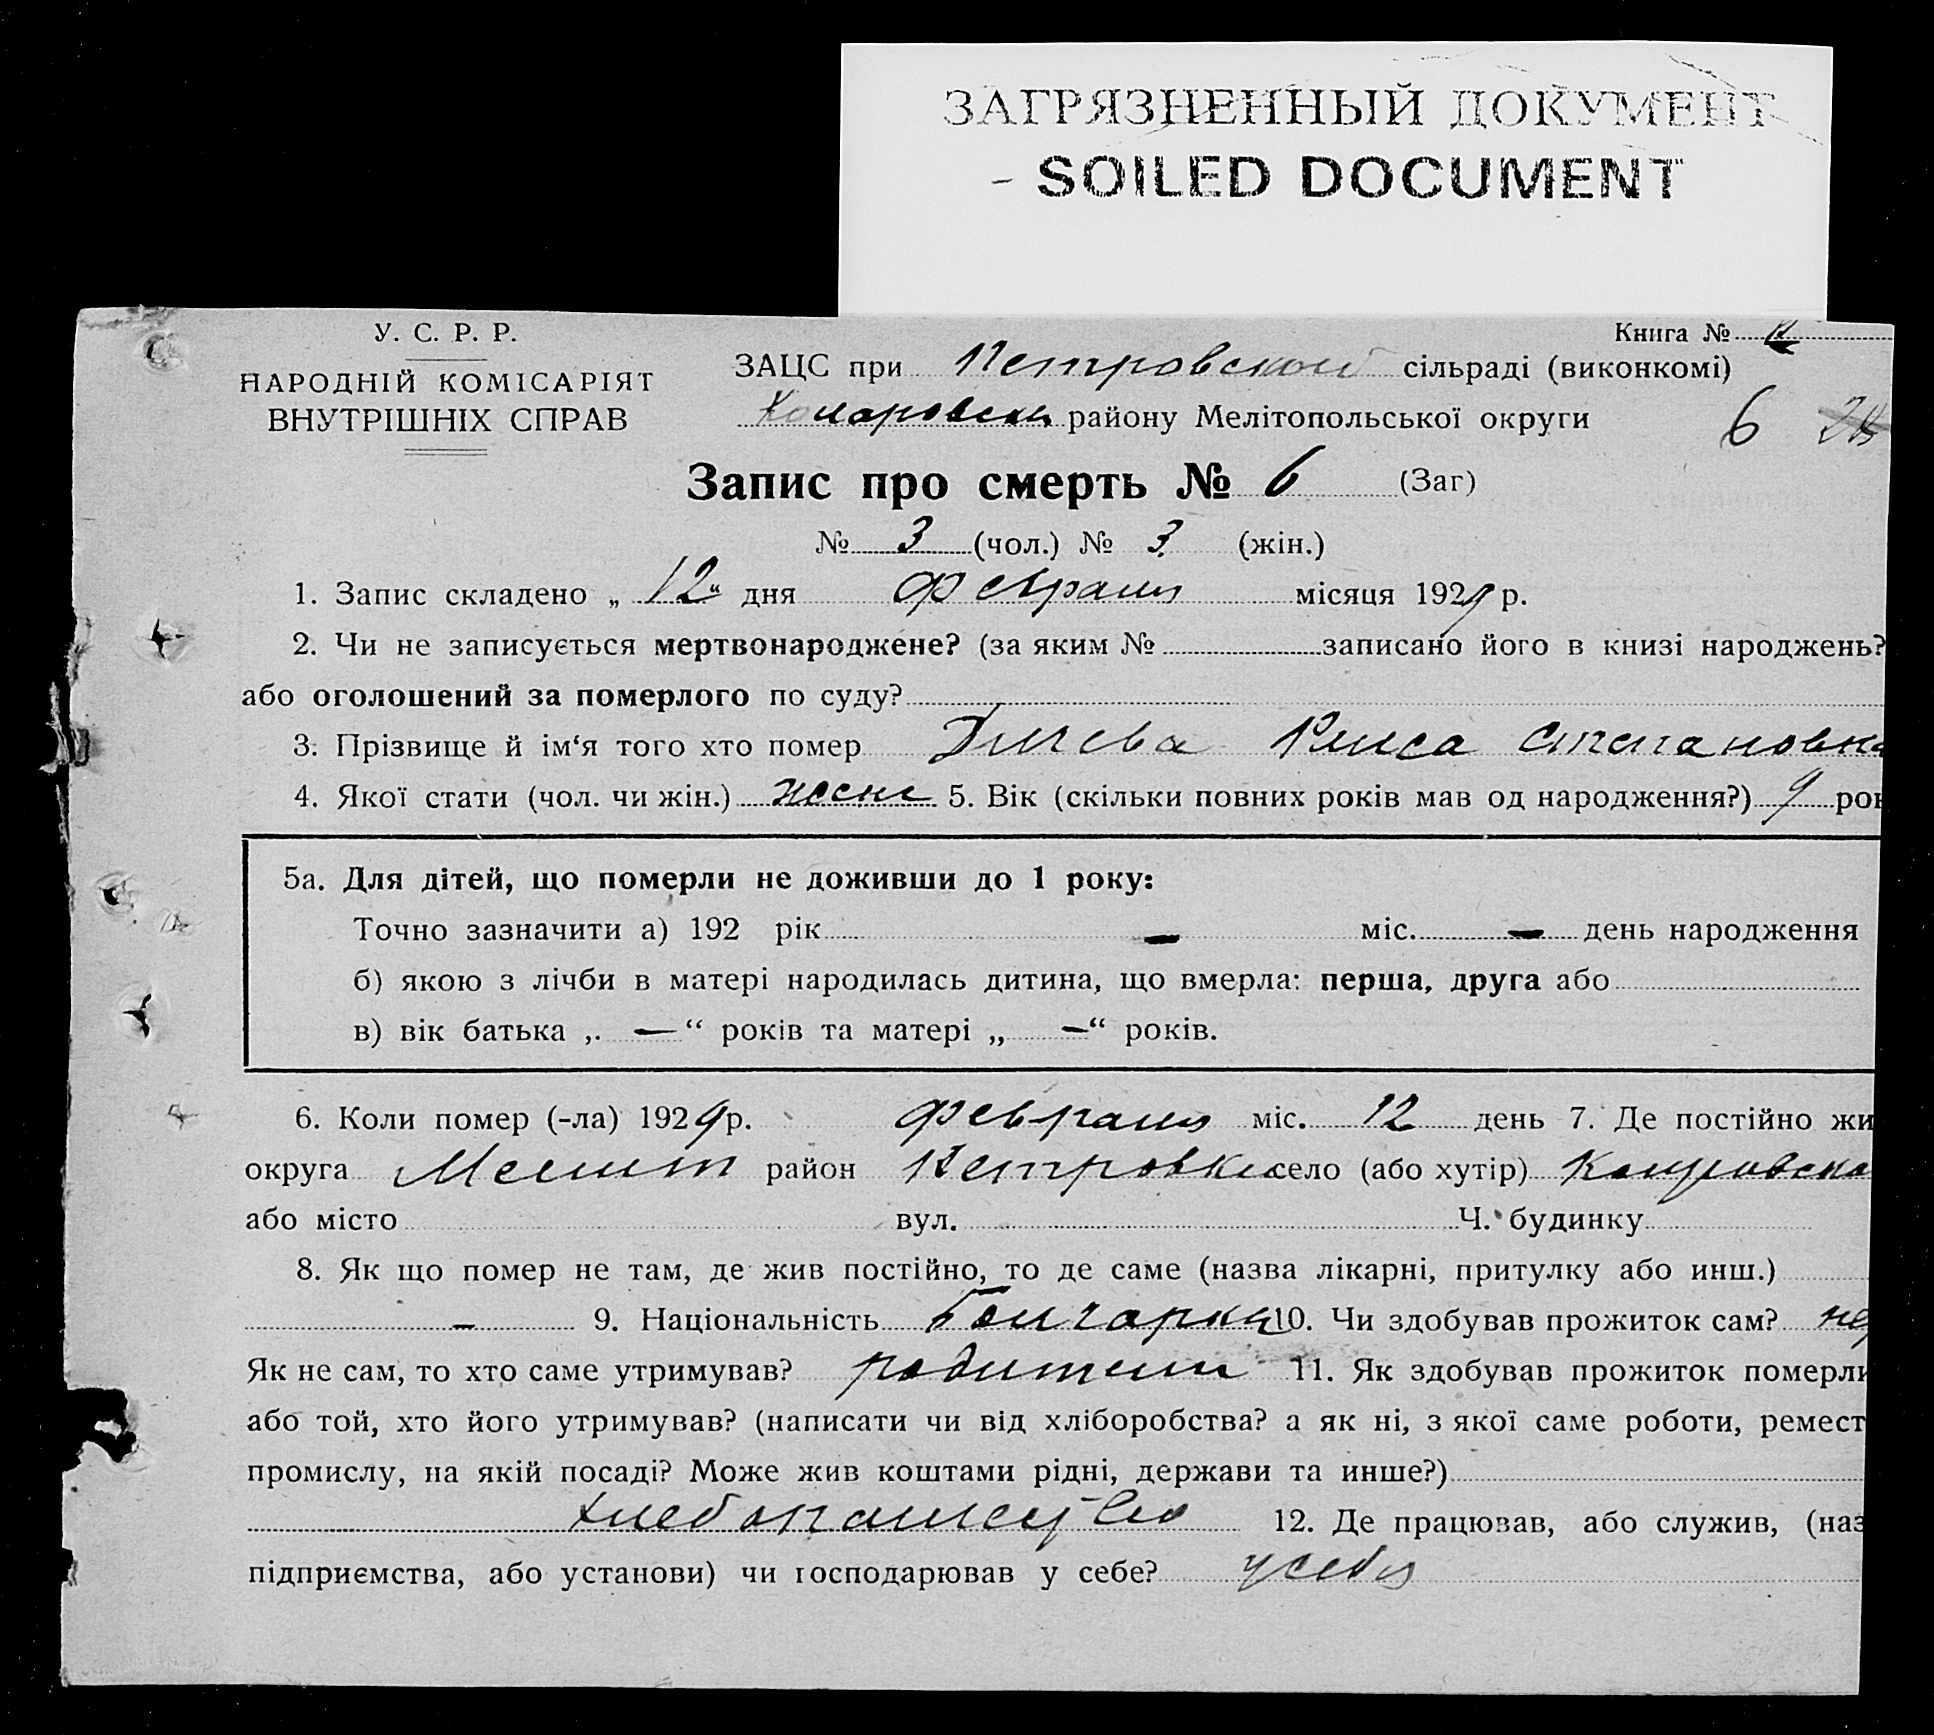 ЗАГРЯЗНЕННЫЙ ДОКУМЕНТ
- SOILED DOCUMENT
У. С. Р. Р.
НАРОДНІЙ КОМІСАРІЯТ
ВНУТРІШНІХ СПРАВ
Книга №
ЗАЦС при Петровской сільраді (виконкомі)
району Мелітопольської округи 6
Запис про смерть № 6 (Заг)
№ 3 (чол.) № 3 (жін.)
1. Запис складено „ 12 “ дня февраля місяця 1929 р.
2. Чи не записується мертвонароджене? (за яким № записано його в книзі народжень?
або оголошений за померлого по суду?
3. Прізвище й ім‘я того хто помер Степановна
4. Якої стати (чол. чи жін.) женс 5. Вік (скільки повних років мав од народження?) 9 рок
5а. Для дітей, що померли не доживши до 1 року:
Точно зазначити а) 192 рік — міс. — день народження
б) якою з лічби в матері народилась дитина, що вмерла: перша, друга або
в) вік батька „ — “ років та матері „ — “ років.
6. Коли помер (-ла) 1929 р. февраля міс. 12 день 7. Де постійно жи
округа Мелит район Петровка село (або хутір)
або місто вул. Ч. будинку
8. Як що помер не там, де жив постійно, то де саме (назва лікарні, притулку або инш.)
— 9. Національність Болгарка 10. Чи здобував прожиток сам? нет
Як не сам, то хто саме утримував? родители 11. Як здобував прожиток померли
або той, хто його утримував? (написати чи від хліборобства? а як ні, з якої саме роботи, ремест
промислу, на якій посаді? Може жив коштами рідні, держави та инше?)
хлебопашество 12. Де працював, або служив, (наз
підприємства, або установи) чи господарював у себе? у себя